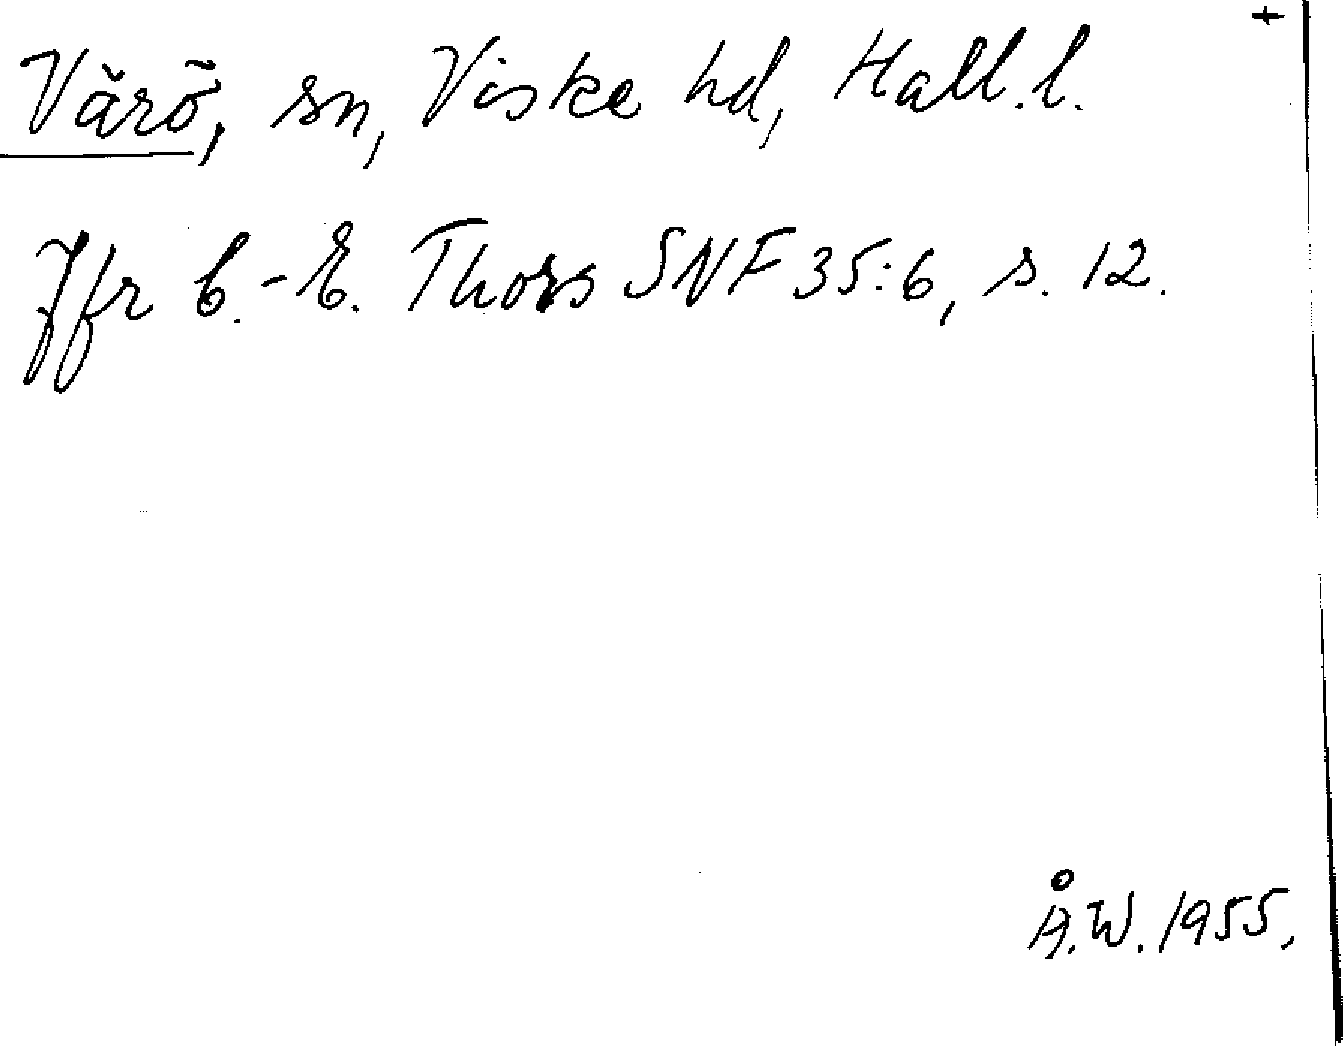 +
Värö, sn, Viske hd, Hall. l.
Jfr C.-E. Thors SNF 35:6, s. 12.
Å.W. 1955.